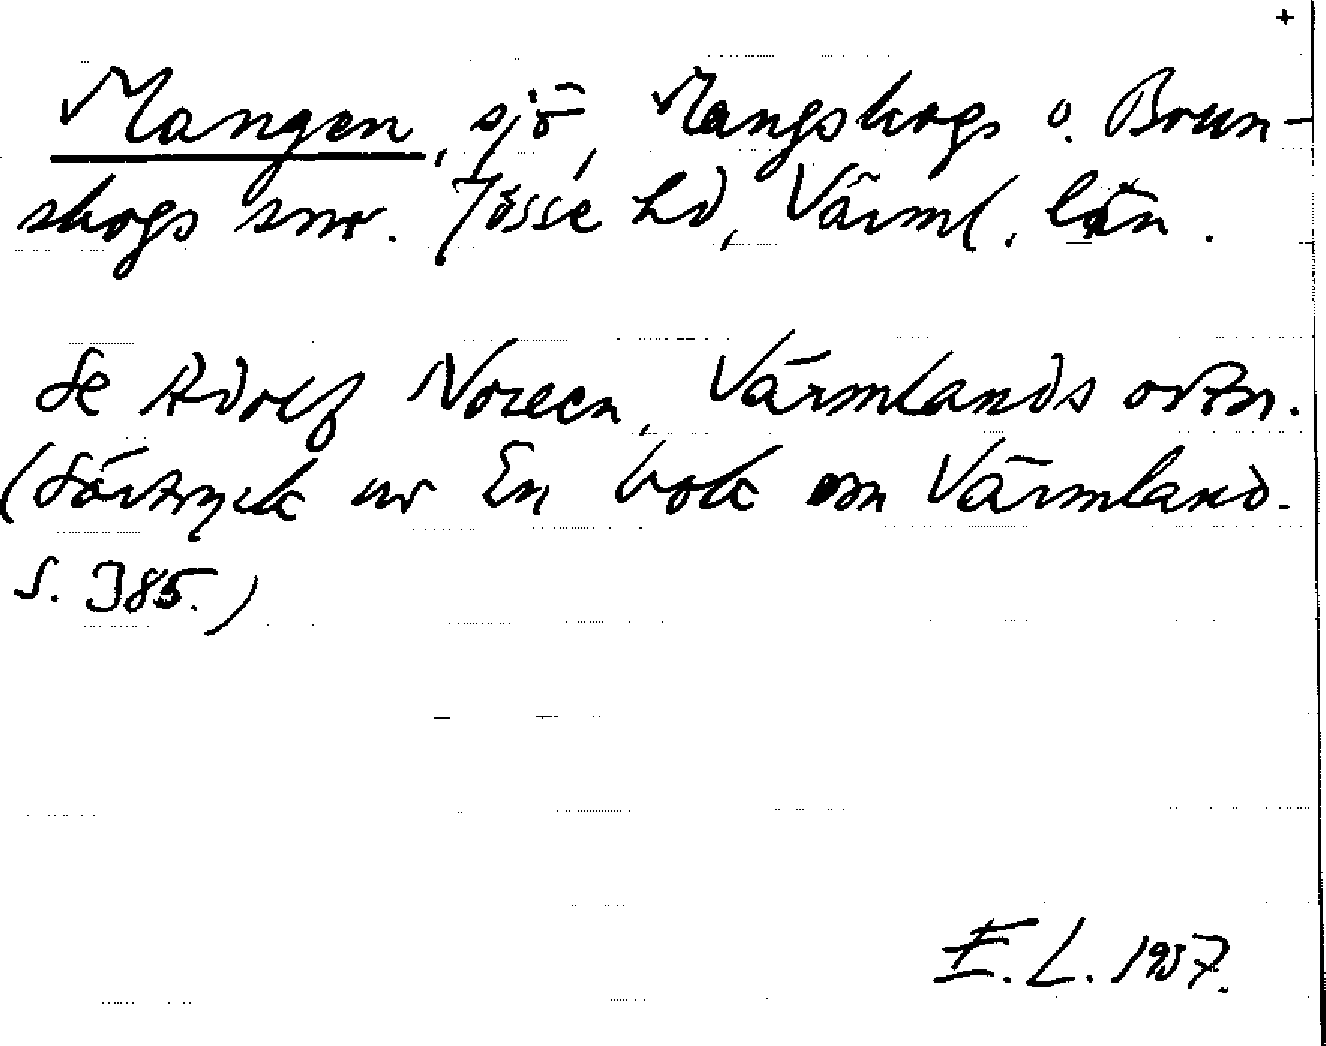 +
Mangen, sjö, Mangskogs o. Brun-
skogs snr. Jösse hd, Värml. län.
Se Adolf Noreen, Värmlands ortn.
(Särtryck ur En bok om Värmland.
S. 385.)
E. L. 1957.